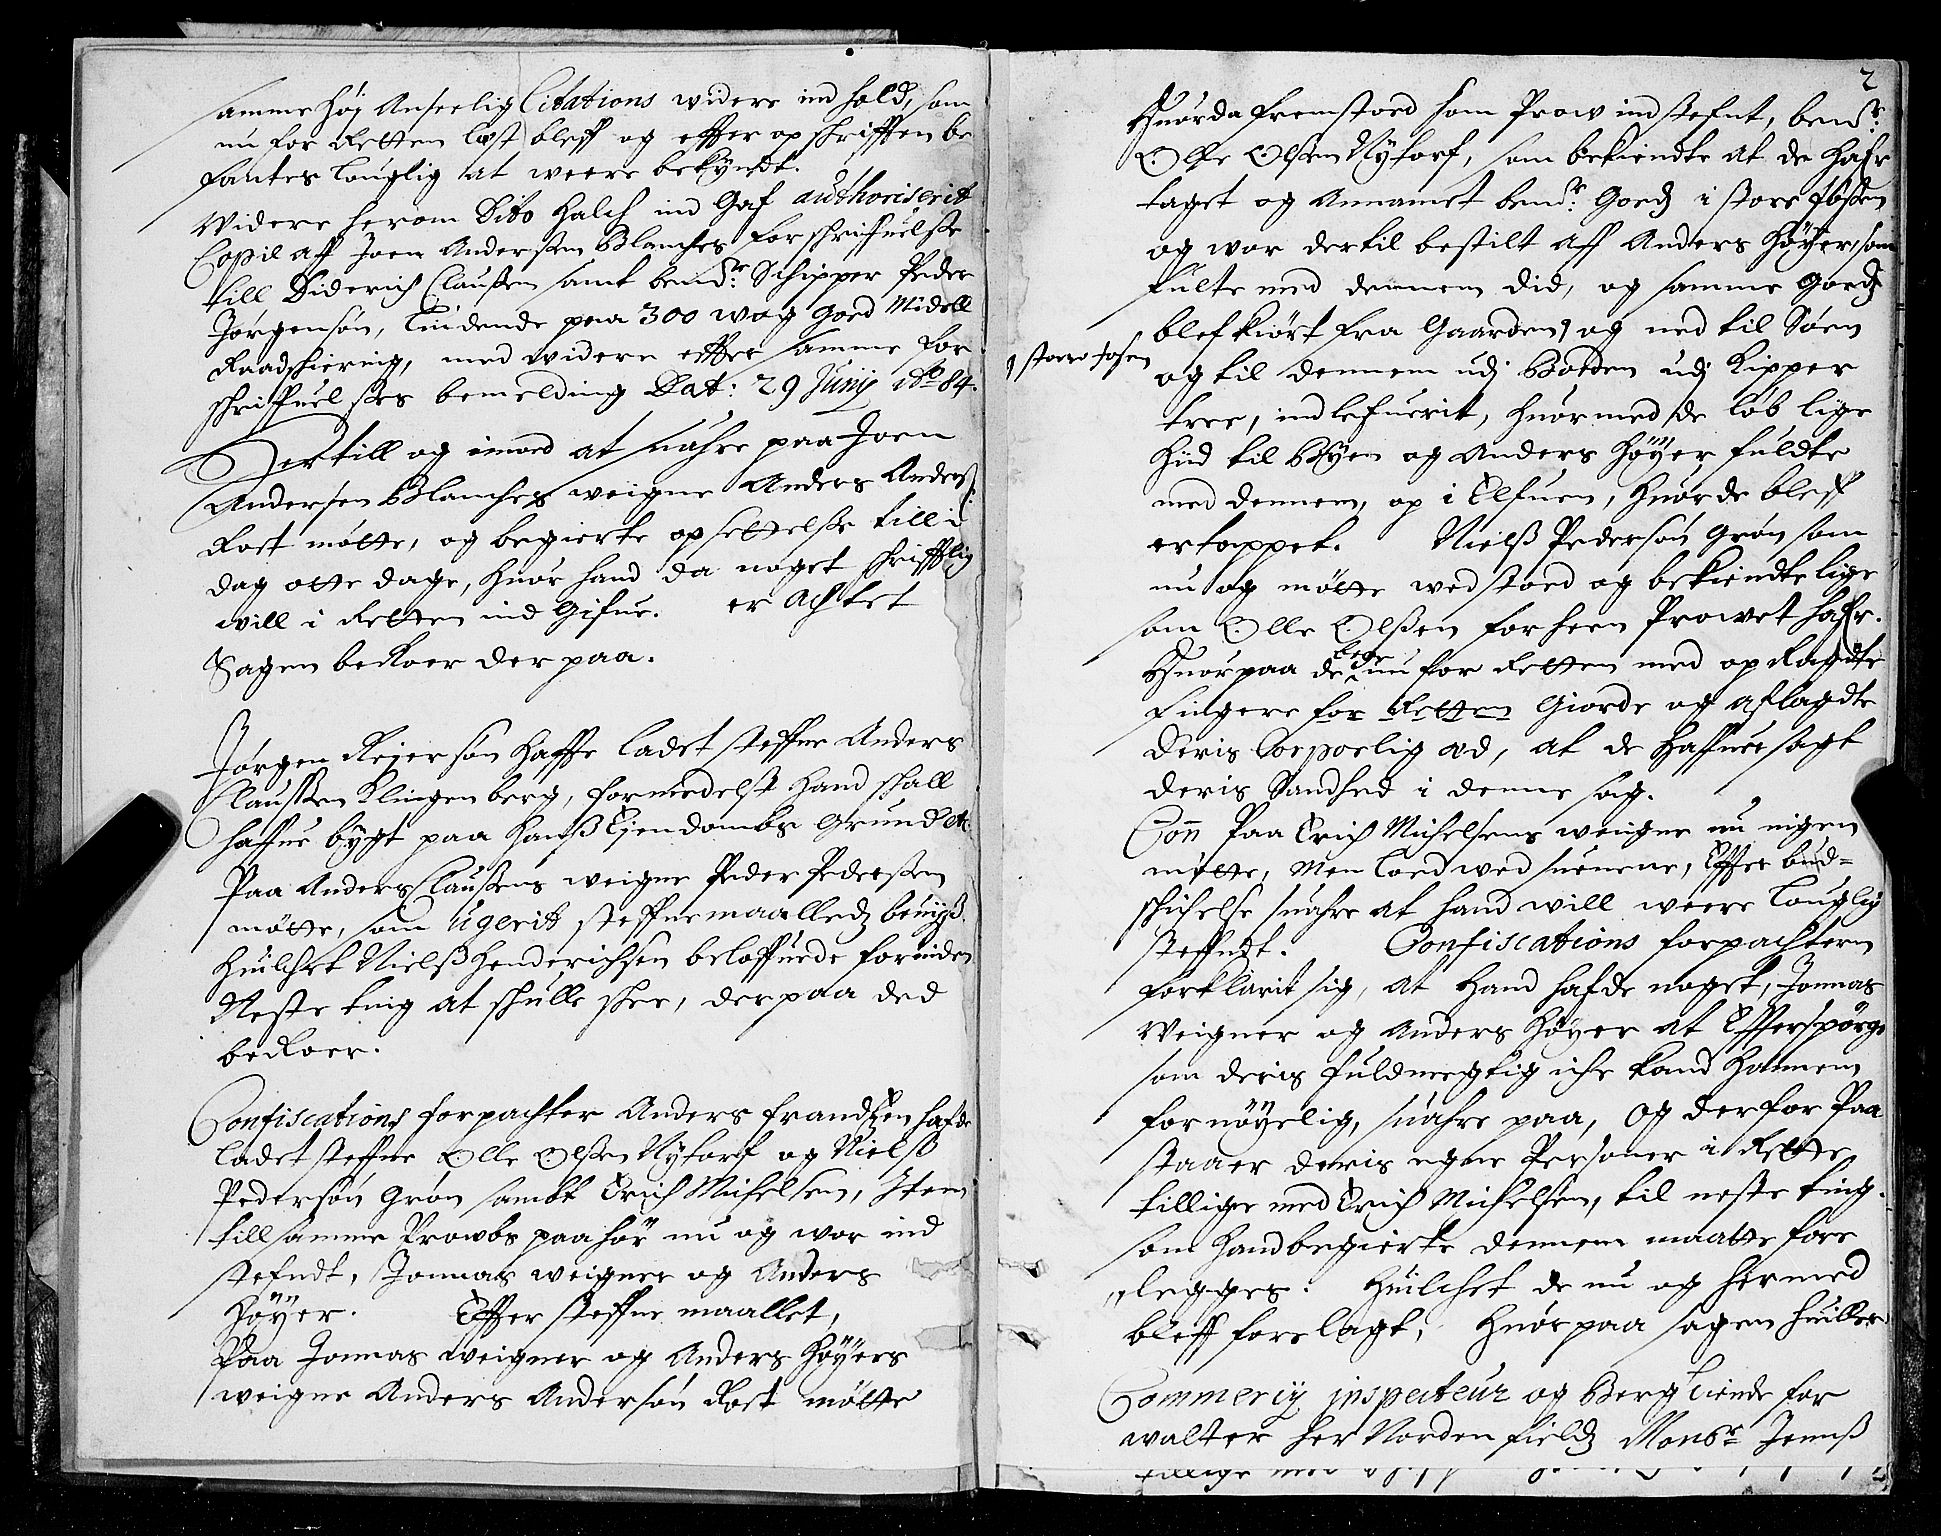 samme høj Anseelig Citations widere ind hold, som
nu for Retten læst bleff og effter op schrifften be
fantes louglig at weere bekyndt.
Widere herom Dito Halch ind Gaf authoriserit
Copii aff Joen Andersen Blanches forschrifuelse
till Diderich Claussen samt bemt. Schipper Peder
Jørgensøn, liudende paa 300 wog Goed Midell
Raadschering, med widere effter samme for
schrifuelses bemelding Dat: 29 Junij 1684.
Hertill og imoed at suahre paa Joen
Andersen Blanches weigne Anders Anders:
Rost møtte, og begierte opsettelse till i
dag otte dage, huor hand da noget schrifftlig
will i Retten ind Gifue. er achtet
Sagen beroer der paa.
Jørgen Rejersøn haffr ladet steffne Anders
Claussen Klingenberg, formedelst hand schall
haffue bygt paa hans Eiendombs Grund etc.
Paa Anders Claussens weigne Peder Pedersen
møtte, som ugerit steffnemaalledz beuiiss.
huilchet Nielss Henderichsen beloffuede forinden
Neste ting at schulle schee, derpaa ded
beroer.
Confiscations forpachter Anders Frandtzen hafde
ladet steffne Olle Olsen Nytorf og Nielss
Pedersøn Grøn sambt Erich Michelsen, Item
till samme Prowbs paahør nu og war ind
stefndt, Jonnas weigner og Anders
Høÿer. Effter steffne maallet,
Paa Jonnas weigner og Anders Høÿers
weigne Anders Andersøn Rost møtte
2
Huorda fremstoed som Prow indstefnt, bemte:
Olle Olsen Nytorf, som bekiendte at de hafr
taget og Annamet bemte. Goedz i store fossen
og war dertil bestilt aff Anders Høÿer, som
fulte med dennem did, og samme Goedz
blef kiørt fra Gaarden, og ned til Søen
i store fosen
og til dennem udj Boeden udj Kipper
tree, indlefuerit, huormed de løb lige
hid til Byen og Anders Høÿer fuldte
med dennem, op i Elfuen, huorde bleff
ertappet. Nielss Pedersøn Grøn som
nu og møtte wed stoed og bekiendte lige
som Olle Olssen for heen Prowet hafr.
Huorpaa de bege nu for Retten med op Ragdte
Fingere for Retten Giorde og aflagdte
deris Corporlig æd, at de haffuer sagt
deris Sandhed i denne sag.
Conn Paa Erich Michelsens weigne nu ingen
møtte, Men loed wed suenene, Effter bud=
schichelse suahre at hand will weere louglig
steffndt. Confiscations forpachteren
forklarit sig, at hand hafde noget, Jonnas
Weigner og Anders Høÿer at Efferspørge
som deris fuldmegtig iche kand hannem
fornøÿelig, suahre paa, og derfor Paa
staaer deris egne Personer i Rette
tillige med Erich Michelsen, til neste ting.
som hand begierte dennem maatte fore
legges: huilchet de nu og hermed
bleff forelagt, huorpaa sagen huiller
Commercij inspecteur og Berg tiende for
walter her Nordenfieldz Monsr Jennss